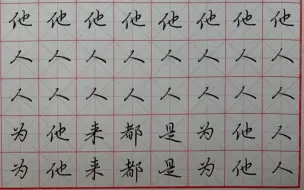 他他他他他他他他
人人人人人人人人
人人人人人人人人
为他来都是为他人
为他来都是为他人